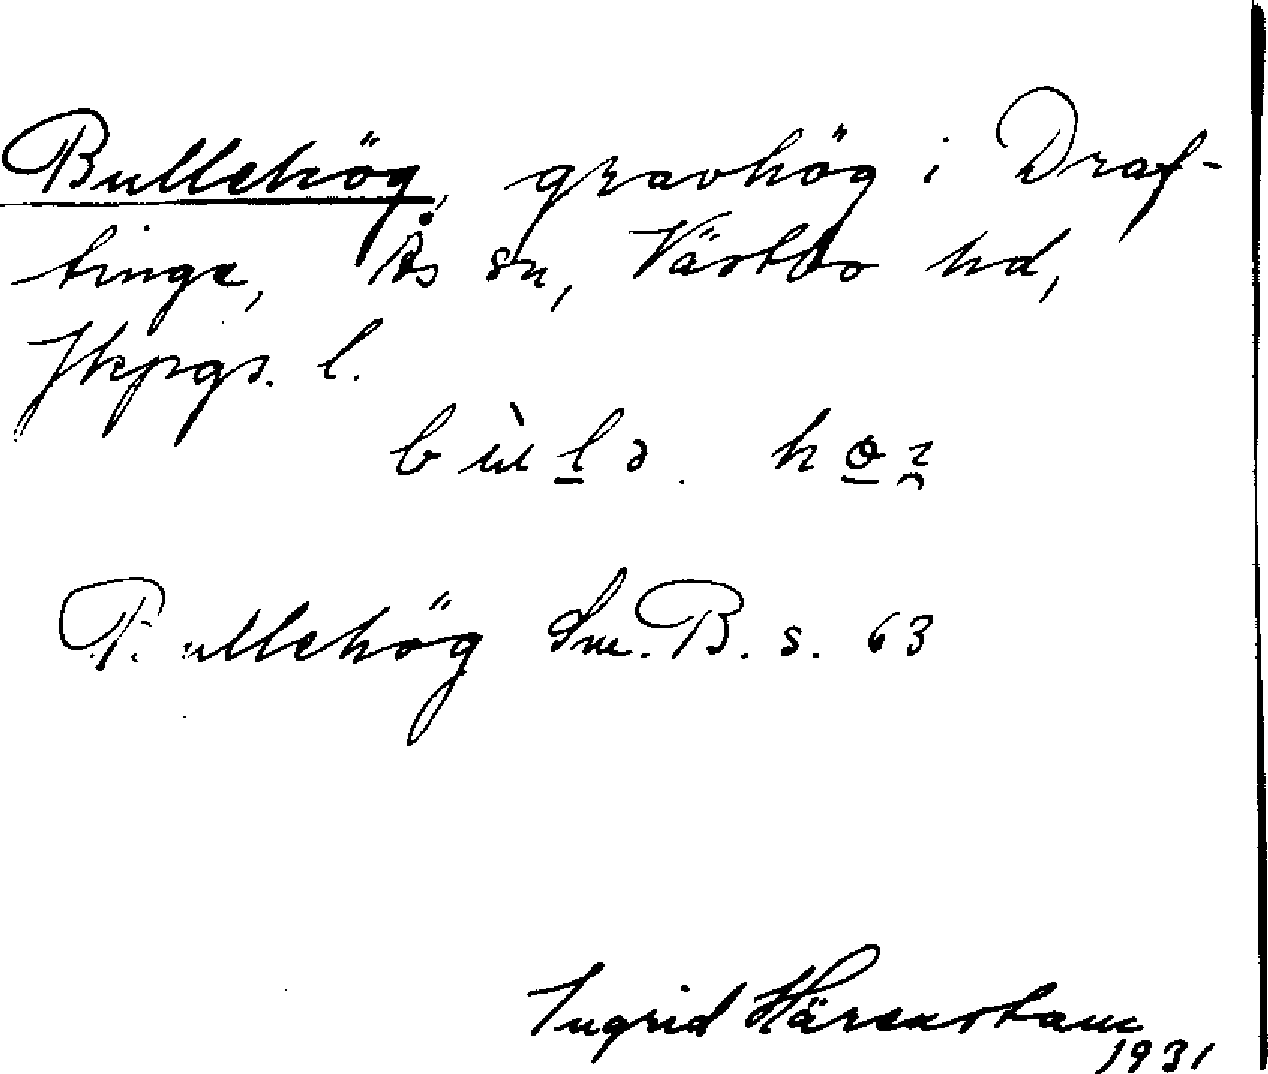 Bullehög, gravhög i Draf-
tinge, Ås sn, Västbo hd,
Jkpgs. l.
Bullehög Sm. B. s. 63
Ingrid Härenstam
1931